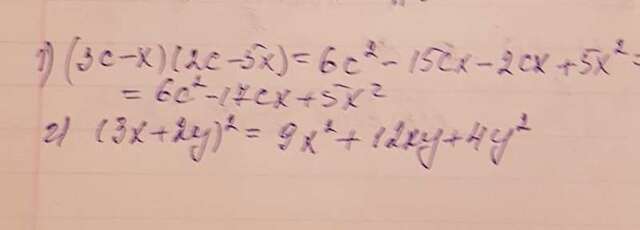 1) (3c-x)(2c-5x)=6c²-15cx-2cx+5x²=
=6c²-17cx+5x²
2) (3x+2y)²=9x²+12xy+4y²